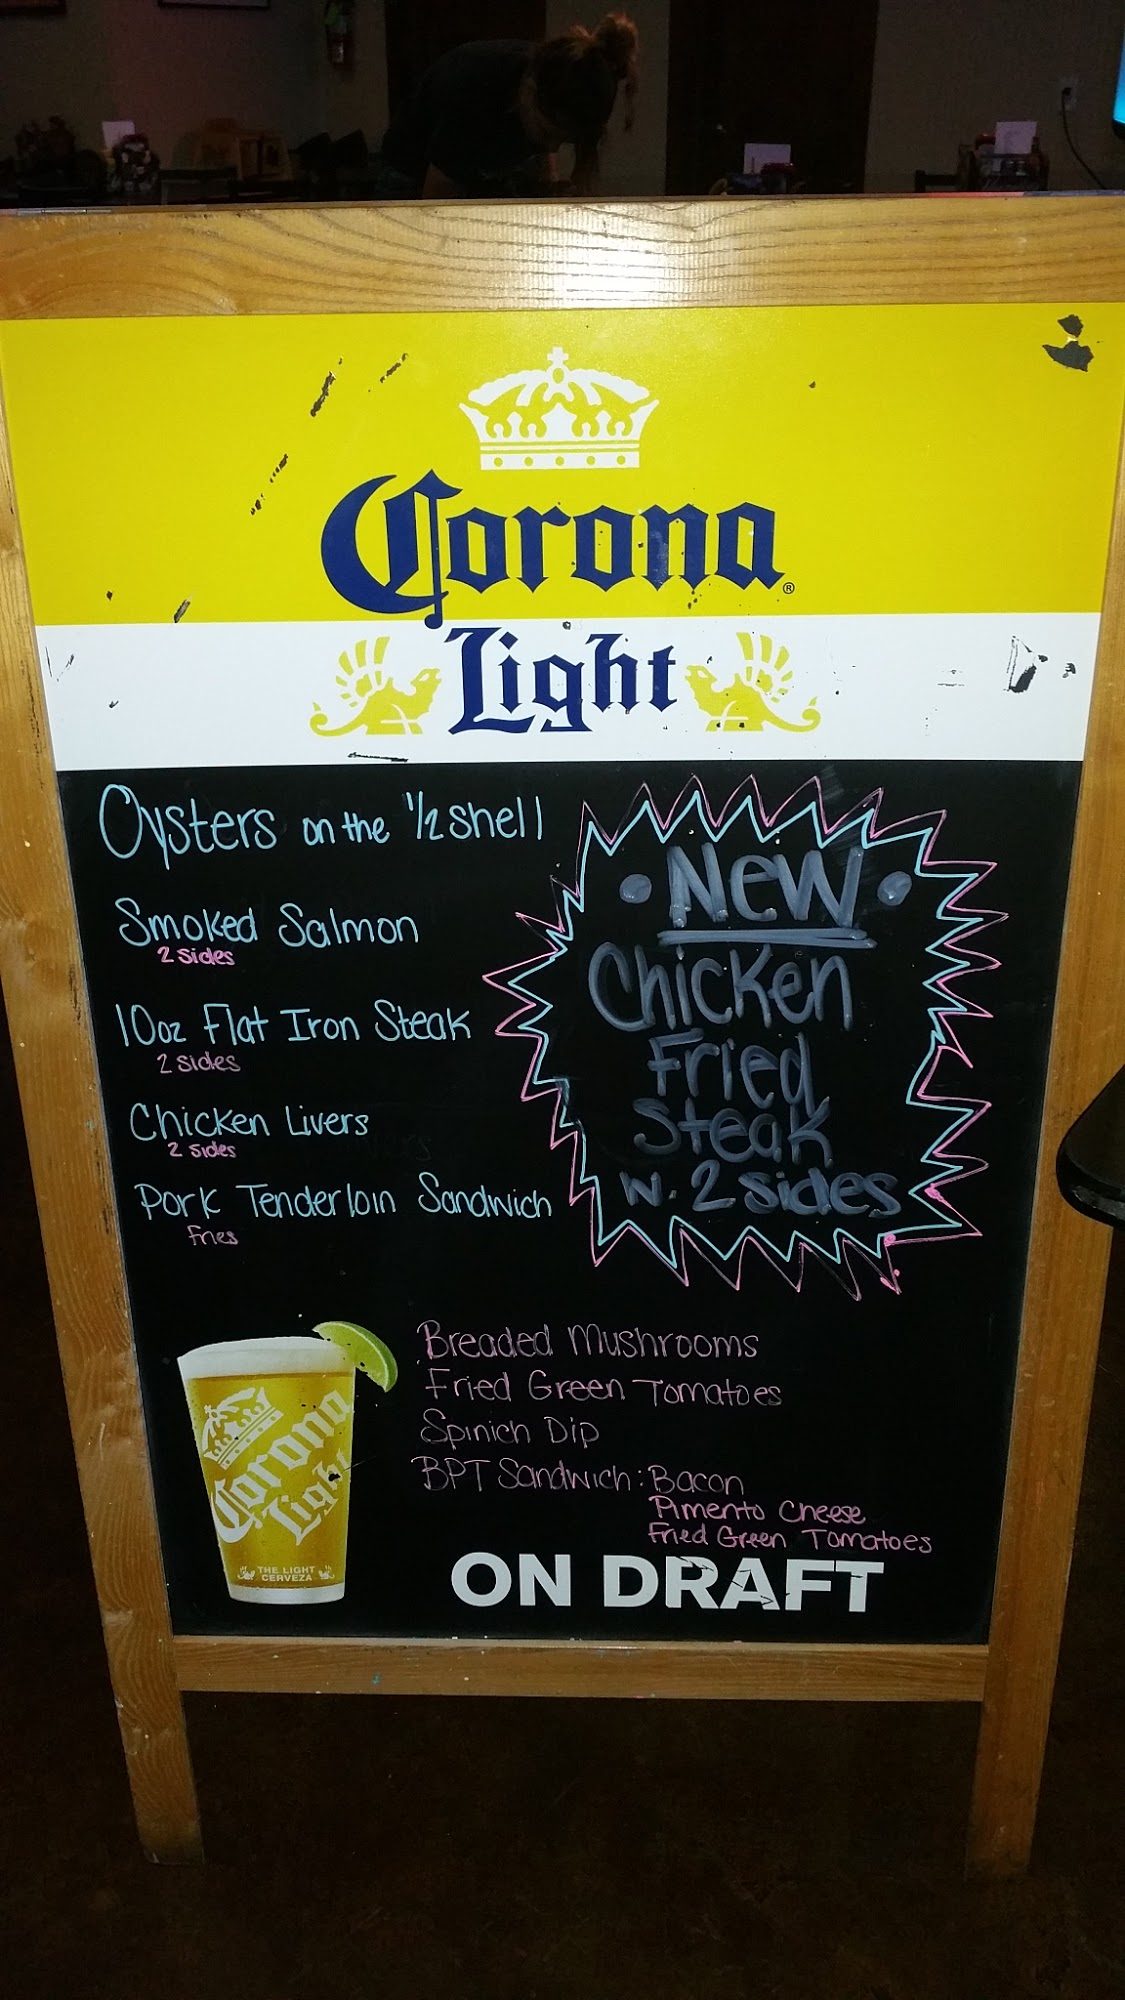 Corona®
Light
Oysters on the 1/2 shell
Smoked Salmon
2 sides
10oz Flat Iron Steak
2 sides
Chicken Livers
2 sides
Pork Tenderloin Sandwich
fries
• New •
Chicken
Fried
Steak
w. 2 sides
Breaded Mushrooms
Fried Green Tomatoes
Spinich Dip
BPT Sandwich: Bacon
Pimento Cheese
Fried Green Tomatoes
Corona
Light
THE LIGHT
CERVEZA
ON DRAFT